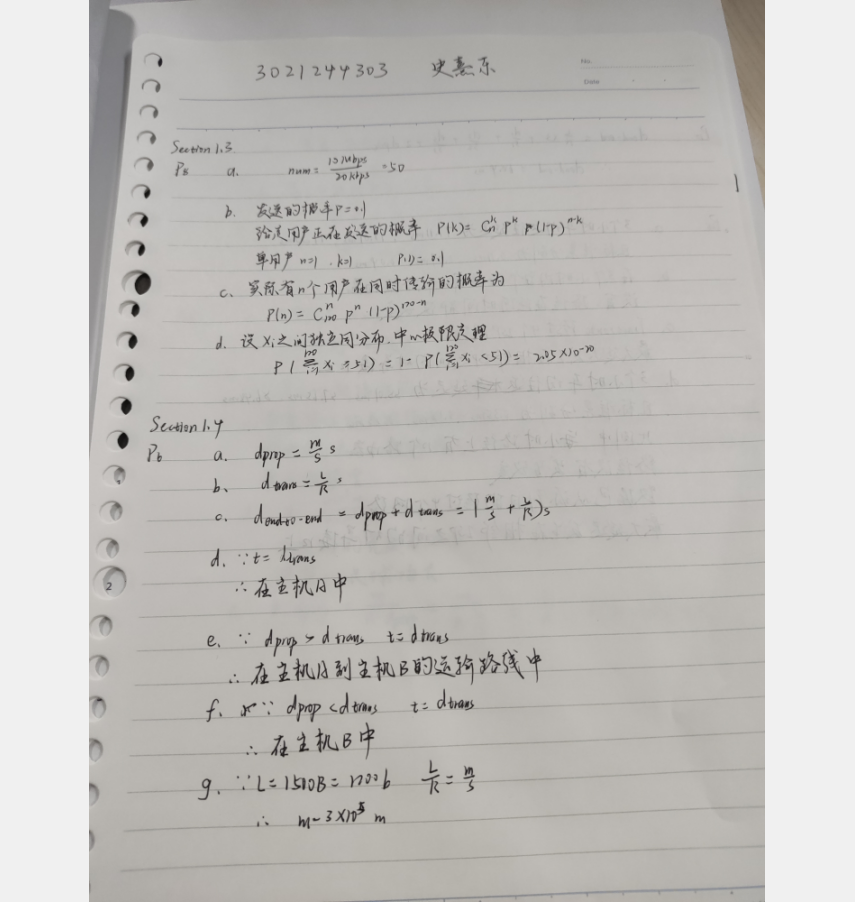 3021244303 史熹东
No.
Date
Section 1.3
P8 a. num = 10Mbps / 20kbps = 50
b. 发送的概率P=0.1
给定用户正在发送的概率 P(k) = C_n^k p^k (1-p)^{n-k}
单用户 n=1 . k=1 P(1)= 0.1
c. 实际有n个用户在同时传输的概率为
P(n) = C_{120}^n p^n (1-p)^{120-n}
d. 设Xi之间独立同分布.中心极限定理
P(∑_{i=1}^{120} Xi ≥51) = 1- P(∑_{i=1}^{120} Xi <51) = 2.05×10^{-20}
Section 1.4
P6 a. dprop = m/s s
b. dtrans = L/R s
c. dend-to-end = dprop + dtrans = (m/s + L/R)s
d. ∵ t= dtrans
∴ 在主机A中
e. ∵ dprop > dtrans t= dtrans
∴ 在主机A到主机B的运输路线中
f. ∵ dprop < dtrans t= dtrans
∴ 在主机B中
g. ∵ L= 1500B = 1200b L/R = m/s
∴ m= 3×10^5 m
2